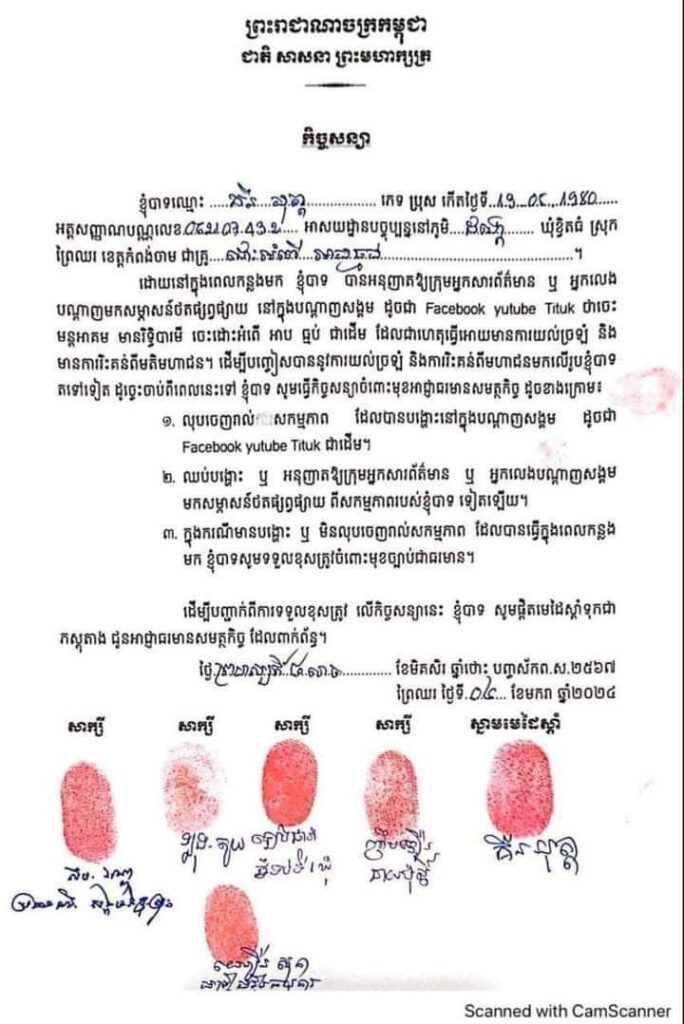 ព្រះរាជាណាចក្រកម្ពុជា
ជាតិ សាសនា ព្រះមហាក្សត្រ
កិច្ចសន្យា
ខ្ញុំបាទឈ្មោះ ................ ភេទ ប្រុស កើតថ្ងៃទី..១៦..០៤..១៩៨០......
អត្តសញ្ញាណបណ្ណលេខ........ អាសយដ្ឋានបច្ចុប្បន្ននៅភូមិ........ ឃុំខ្វិតធំ ស្រុក
ព្រៃឈរ ខេត្តកំពង់ចាម ជាគ្រូ....ដោះអំពើ..អាបធ្មប់................................។
ដោយនៅក្នុងពេលកន្លងមក ខ្ញុំបាទ បានអនុញាតឱ្យក្រុមអ្នកសារព័ត៌មាន ឬ អ្នកលេង
បណ្តាញមកសម្ភាសន៍ថតផ្សព្វផ្សាយ នៅក្នុងបណ្តាញសង្គម ដូចជា Facebook yutube Tituk ថាចេះ
មន្តអាគម មានរិទ្ធិបារមី ចេះដោះអំពើ អាប ធ្មប់ ជាដើម ដែលជាហេតុធ្វើអោយមានការយល់ច្រឡំ និង
មានការរិះគន់ពីមតិមហាជន។ ដើម្បីបញ្ចៀសបាននូវការយល់ច្រឡំ និងការរិះគន់ពីមហាជនមកលើរូបខ្ញុំបាទ
តទៅទៀត ដូច្នេះចាប់ពីពេលនេះទៅ ខ្ញុំបាទ សូមធ្វើកិច្ចសន្យាចំពោះមុខអាជ្ញាធរមានសមត្ថកិច្ច ដូចខាងក្រោម៖
១. លុបចេញរាល់ សកម្មភាព ដែលបានបង្ហោះនៅក្នុងបណ្តាញសង្គម ដូចជា
Facebook yutube Tituk ជាដើម។
២. ឈប់បង្ហោះ ឬ អនុញាតឱ្យក្រុមអ្នកសារព័ត៌មាន ឬ អ្នកលេងបណ្តាញសង្គម
មកសម្ភាសន៍ថតផ្សព្វផ្សាយ ពីសកម្មភាពរបស់ខ្ញុំបាទ ទៀតឡើយ។
៣. ក្នុងករណីមានបង្ហោះ ឬ មិនលុបចេញរាល់សកម្មភាព ដែលបានធ្វើក្នុងពេលកន្លង
មក ខ្ញុំបាទសូមទទួលខុសត្រូវចំពោះមុខច្បាប់ជាធរមាន។
ដើម្បីបញ្ជាក់ពីការទទួលខុសត្រូវ លើកិច្ចសន្យានេះ ខ្ញុំបាទ សូមផ្តិតមេដៃស្តាំទុកជា
ភស្តុតាង ជូនអាជ្ញាធរមានសមត្ថកិច្ច ដែលពាក់ព័ន្ធ។
ថ្ងៃ ព្រហស្បតិ៍ ៨ រោច ............ ខែមិគសិរ ឆ្នាំថោះ បញ្ចស័កព.ស.២៥៦៧
ព្រៃឈរ ថ្ងៃទី.០៤... ខែមករា ឆ្នាំ២០២៤
សាក្សី សាក្សី សាក្សី សាក្សី ស្នាមមេដៃស្តាំ
Scanned with CamScanner